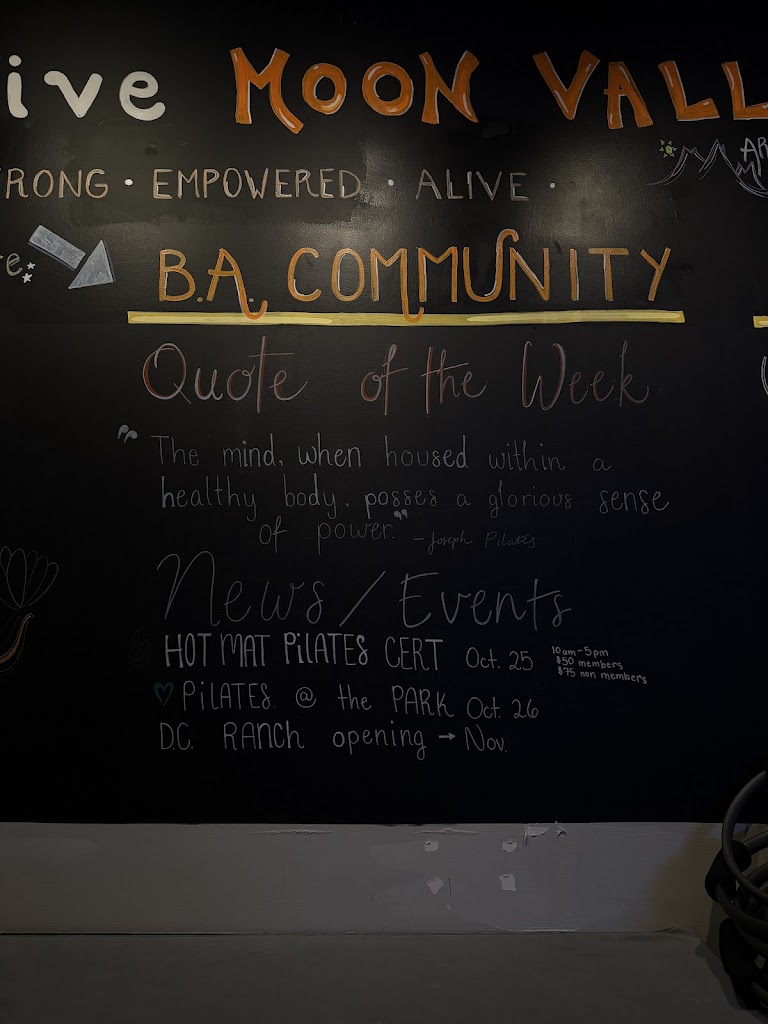 ive MOON VALL
RONG · EMPOWERED · ALIVE ·
AR
e
B.A. COMMUNITY
Quote of the Week
"The mind, when housed within a
healthy body, posses a glorious sense
of power." - Joseph Pilates
News/Events
HOT MAT PiLATES CERT Oct. 25 10am-5pm
$50 members
$75 non members
PiLATES @ the PARK Oct. 26
D.C. RANCH opening → Nov.